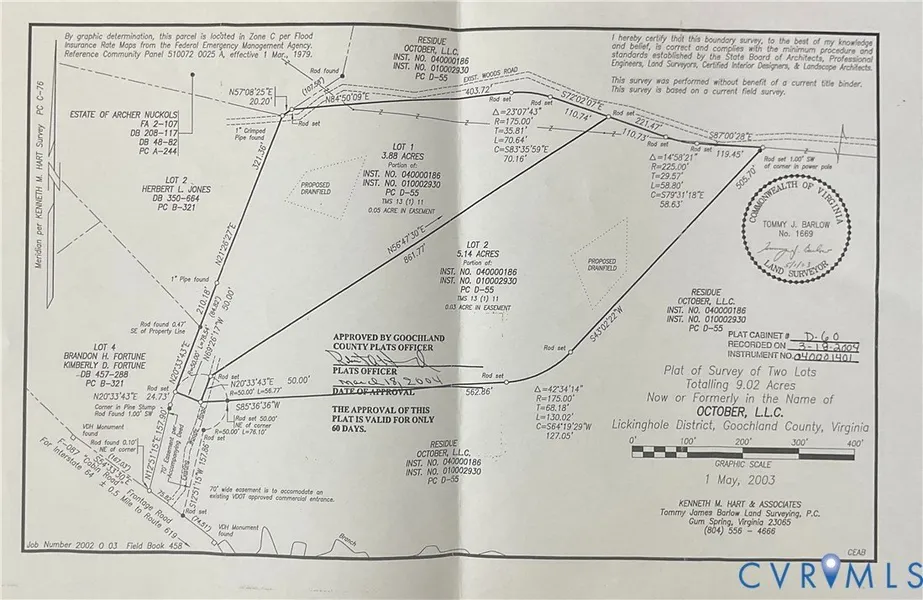 By graphic determination, this parcel is located in Zone C per Flood
Insurance Rate Maps from the Federal Emergency Management Agency.
Reference Community Panel 510072 0025 A, effective 1 Mar., 1979.
RESIDUE
OCTOBER, L.L.C.
INST. NO. 040000186
INST. NO. 010002930
PC D-55
I hereby certify that this boundary survey, to the best of my knowledge
and belief, is correct and complies with the minimum procedure and
standards established by the State Board of Architects, Professional
Engineers, Land Surveyors, Certified Interior Designers, & Landscape Architects.
This survey was performed without benefit of a current title binder.
This survey is based on a current field survey.
Meridian per KENNETH M. HART Survey PC C-75
Rod found
EXIST. WOODS ROAD
N57°08'25"E
20.20'
N84°50'09"E
403.72'
Rod set
S72°02'07"E
110.74'
221.47'
110.73'
Rod set
S87°00'28"E
Rod set
119.45'
Rod set 1.00' SW
of corner in power pole
505.70'
Rod set
1" Crimped
Pipe found
ESTATE OF ARCHER NUCKOLS
FA 2-107
DB 208-117
DB 48-82
PC A-244
LOT 2
HERBERT L. JONES
DB 350-664
PC B-321
321.36'
N21°26'27"E
LOT 1
3.88 ACRES
Portion of:
INST. NO. 040000186
INST. NO. 010002930
PC D-55
TMS 13 (1) 11
0.05 ACRE IN EASEMENT
PROPOSED
DRAINFIELD
Δ=23°07'43"
R=175.00'
T=35.81'
L=70.64'
C=S83°35'59"E
70.16'
Δ=14°58'21"
R=225.00'
T=29.57'
L=58.80'
C=S79°31'18"E
58.63'
COMMONWEALTH OF VIRGINIA
TOMMY J. BARLOW
No. 1669
LAND SURVEYOR
N56°47'30"E
861.77'
LOT 2
5.14 ACRES
Portion of:
INST. NO. 040000186
INST. NO. 010002930
PC D-55
TMS 13 (1) 11
0.03 ACRE IN EASEMENT
PROPOSED
DRAINFIELD
S43°02'22"W
1" Pipe found
210.18'
Rod found 0.47'
SE of Property Line
N69°26'17"W 50.00'
N20°33'43"E
LOT 4
BRANDON H. FORTUNE
KIMBERLY D. FORTUNE
DB 457-288
PC B-321
Rod set
N20°33'43"E
24.73'
Corner in Pine Stump
Rod Found 1.00' SW
N20°33'43"E 50.00'
R=50.00' L=56.77'
S85°36'36"W
Rod set 50.00'
NE of corner
R=50.00' L=76.10'
APPROVED BY GOOCHLAND
COUNTY PLATS OFFICER
PLATS OFFICER
March 18, 2004
DATE OF APPROVAL
THE APPROVAL OF THIS
PLAT IS VALID FOR ONLY
60 DAYS.
Rod set
Rod set
562.86'
Δ=42°34'14"
R=175.00'
T=68.18'
L=130.02'
C=S64°19'29"W
127.05'
RESIDUE
OCTOBER, L.L.C.
INST. NO. 040000186
INST. NO. 010002930
PC D-55
PLAT CABINET # D-60
RECORDED ON 3-18-2004
INSTRUMENT NO. 040001401
Plat of Survey of Two Lots
Totalling 9.02 Acres
Now or Formerly in the Name of
OCTOBER, L.L.C.
Lickinghole District, Goochland County, Virginia
0' 100' 200' 300' 400'
GRAPHIC SCALE
1 May, 2003
KENNETH M. HART & ASSOCIATES
Tommy James Barlow Land Surveying, P.C.
Gum Spring, Virginia 23065
(804) 556 - 4666
RESIDUE
OCTOBER, L.L.C.
INST. NO. 040000186
INST. NO. 010002930
PC D-55
VDH Monument
found
Rod found 0.10'
NE of corner
(167.03')
S54°33'30"E
N12°51'15"E 157.90'
S12°51'15"W 157.86'
75.82'
Rod set
(74.51')
F-087 "Cabin Road"
Frontage Road
For Interstate 64
± 0.5 Mile to Route 619
70' wide easement is to accomodate an
existing VDOT approved commercial entrance.
VDH Monument
found
Branch
Job Number 2002 O 03 Field Book 458
CEAB
CVRMLS